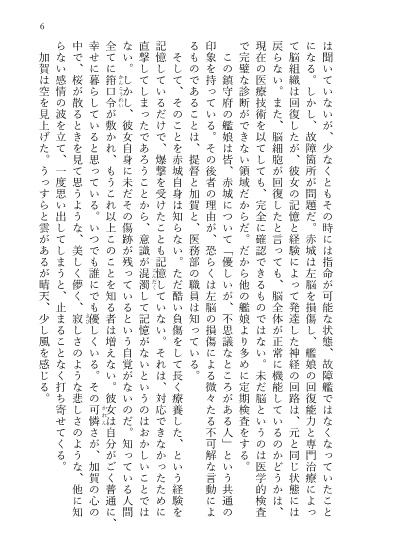 6
は聞いていないが、少なくともその時には指命が可能な状態、故障艦ではなくなっていたこと
になる。しかし、故障箇所が問題だ。赤城は左脳を損傷し、艦娘の回復能力と専門治療によっ
て脳組織は回復したが、彼女の記憶と経験によって発達した神経の回路は、元と同じ状態には
戻らない。また、脳細胞が回復したと言っても、脳全体が正常に機能しているのかどうかは、
現在の医療技術を以てしても、完全に確認できるものではない。未だ脳というのは医学的検査
で完璧な診断ができない領域だからだ。だから他の艦娘より多めに定期検査をする。
この鎮守府の艦娘は皆、赤城について「優しいが、不思議なところがある人」という共通の
印象を持っている。その後者の理由が、恐らくは左脳の損傷による微々たる不可解な言動によ
るものであることは、提督と加賀と、医務部の職員は知っている。
そして、そのことを赤城自身は知らない。ただ酷い負傷をして長く療養した、という経験を
記憶しているだけで、爆撃を受けたことも記憶していない。それは、対応できなかったために
直撃してしまったであろうことから、意識が混濁して記憶がないというのはおかしいことでは
ない。しかし、彼女自身に未だその傷跡が残っているという自覚がないのだ。知っている人間
全てに箝口令が敷かれ、もうこれ以上このことを知る者は増えない。彼女は自分がごく普通に、
幸せに暮らしていると思っている。いつでも誰にでも優しくいる。その可憐さが、加賀の心の
中で、桜が散るときを見て思うような、美しく儚く、寂しさのような悲しさのような、他に知
らない感情の波を立て、一度思い出してしまうと、止まることなく打ち寄せてくる。
加賀は空を見上げた。うっすらと雲があるが晴天、少し風を感じる。